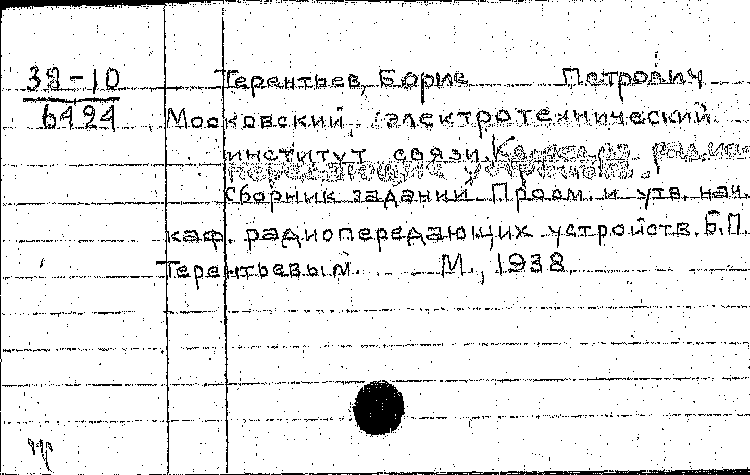 38-10
6494
Терентьев, Борис Петрович
Московский электротехнический
институт связи. Кафедра радио-
передающих устройств.
Сборник заданий. Просм. и утв. нач.
каф. радиопередающих устройств. Б.П.
Терентьевым. М., 1938